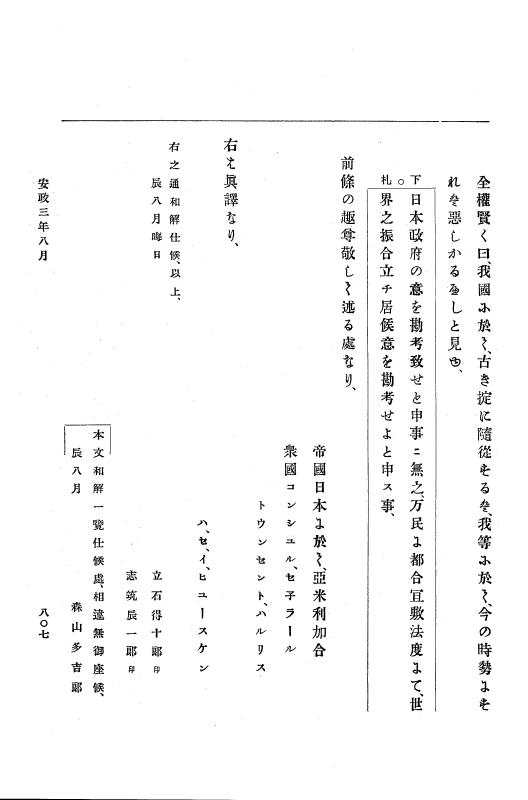 全權賢く曰、我國ニ於て、古き掟に隨從するを、我等ニ於て、今の時勢ニそ
れを惡しかるへしと見ゆ、
下札
○日本政府の意を勘考致せと申事ニ無之、万民ニ都合宜敷法度ニて、世
界之振合立チ居候意を勘考せよと申ス事、
前條の趣尊敬して述る處なり、
帝國日本ニ於て、亞米利加合
衆國コンシユル、セ子ラール
トウンセント、ハルリス
右は眞譯なり、
ハ、セ、イ、ヒユースケン
右之通和解仕候、以上、
辰八月晦日
立石得十郎 印
志筑辰一郎 印
本文和解一覽仕候處、相違無御座候、
辰八月
森山多吉郎
安政三年八月
八〇七